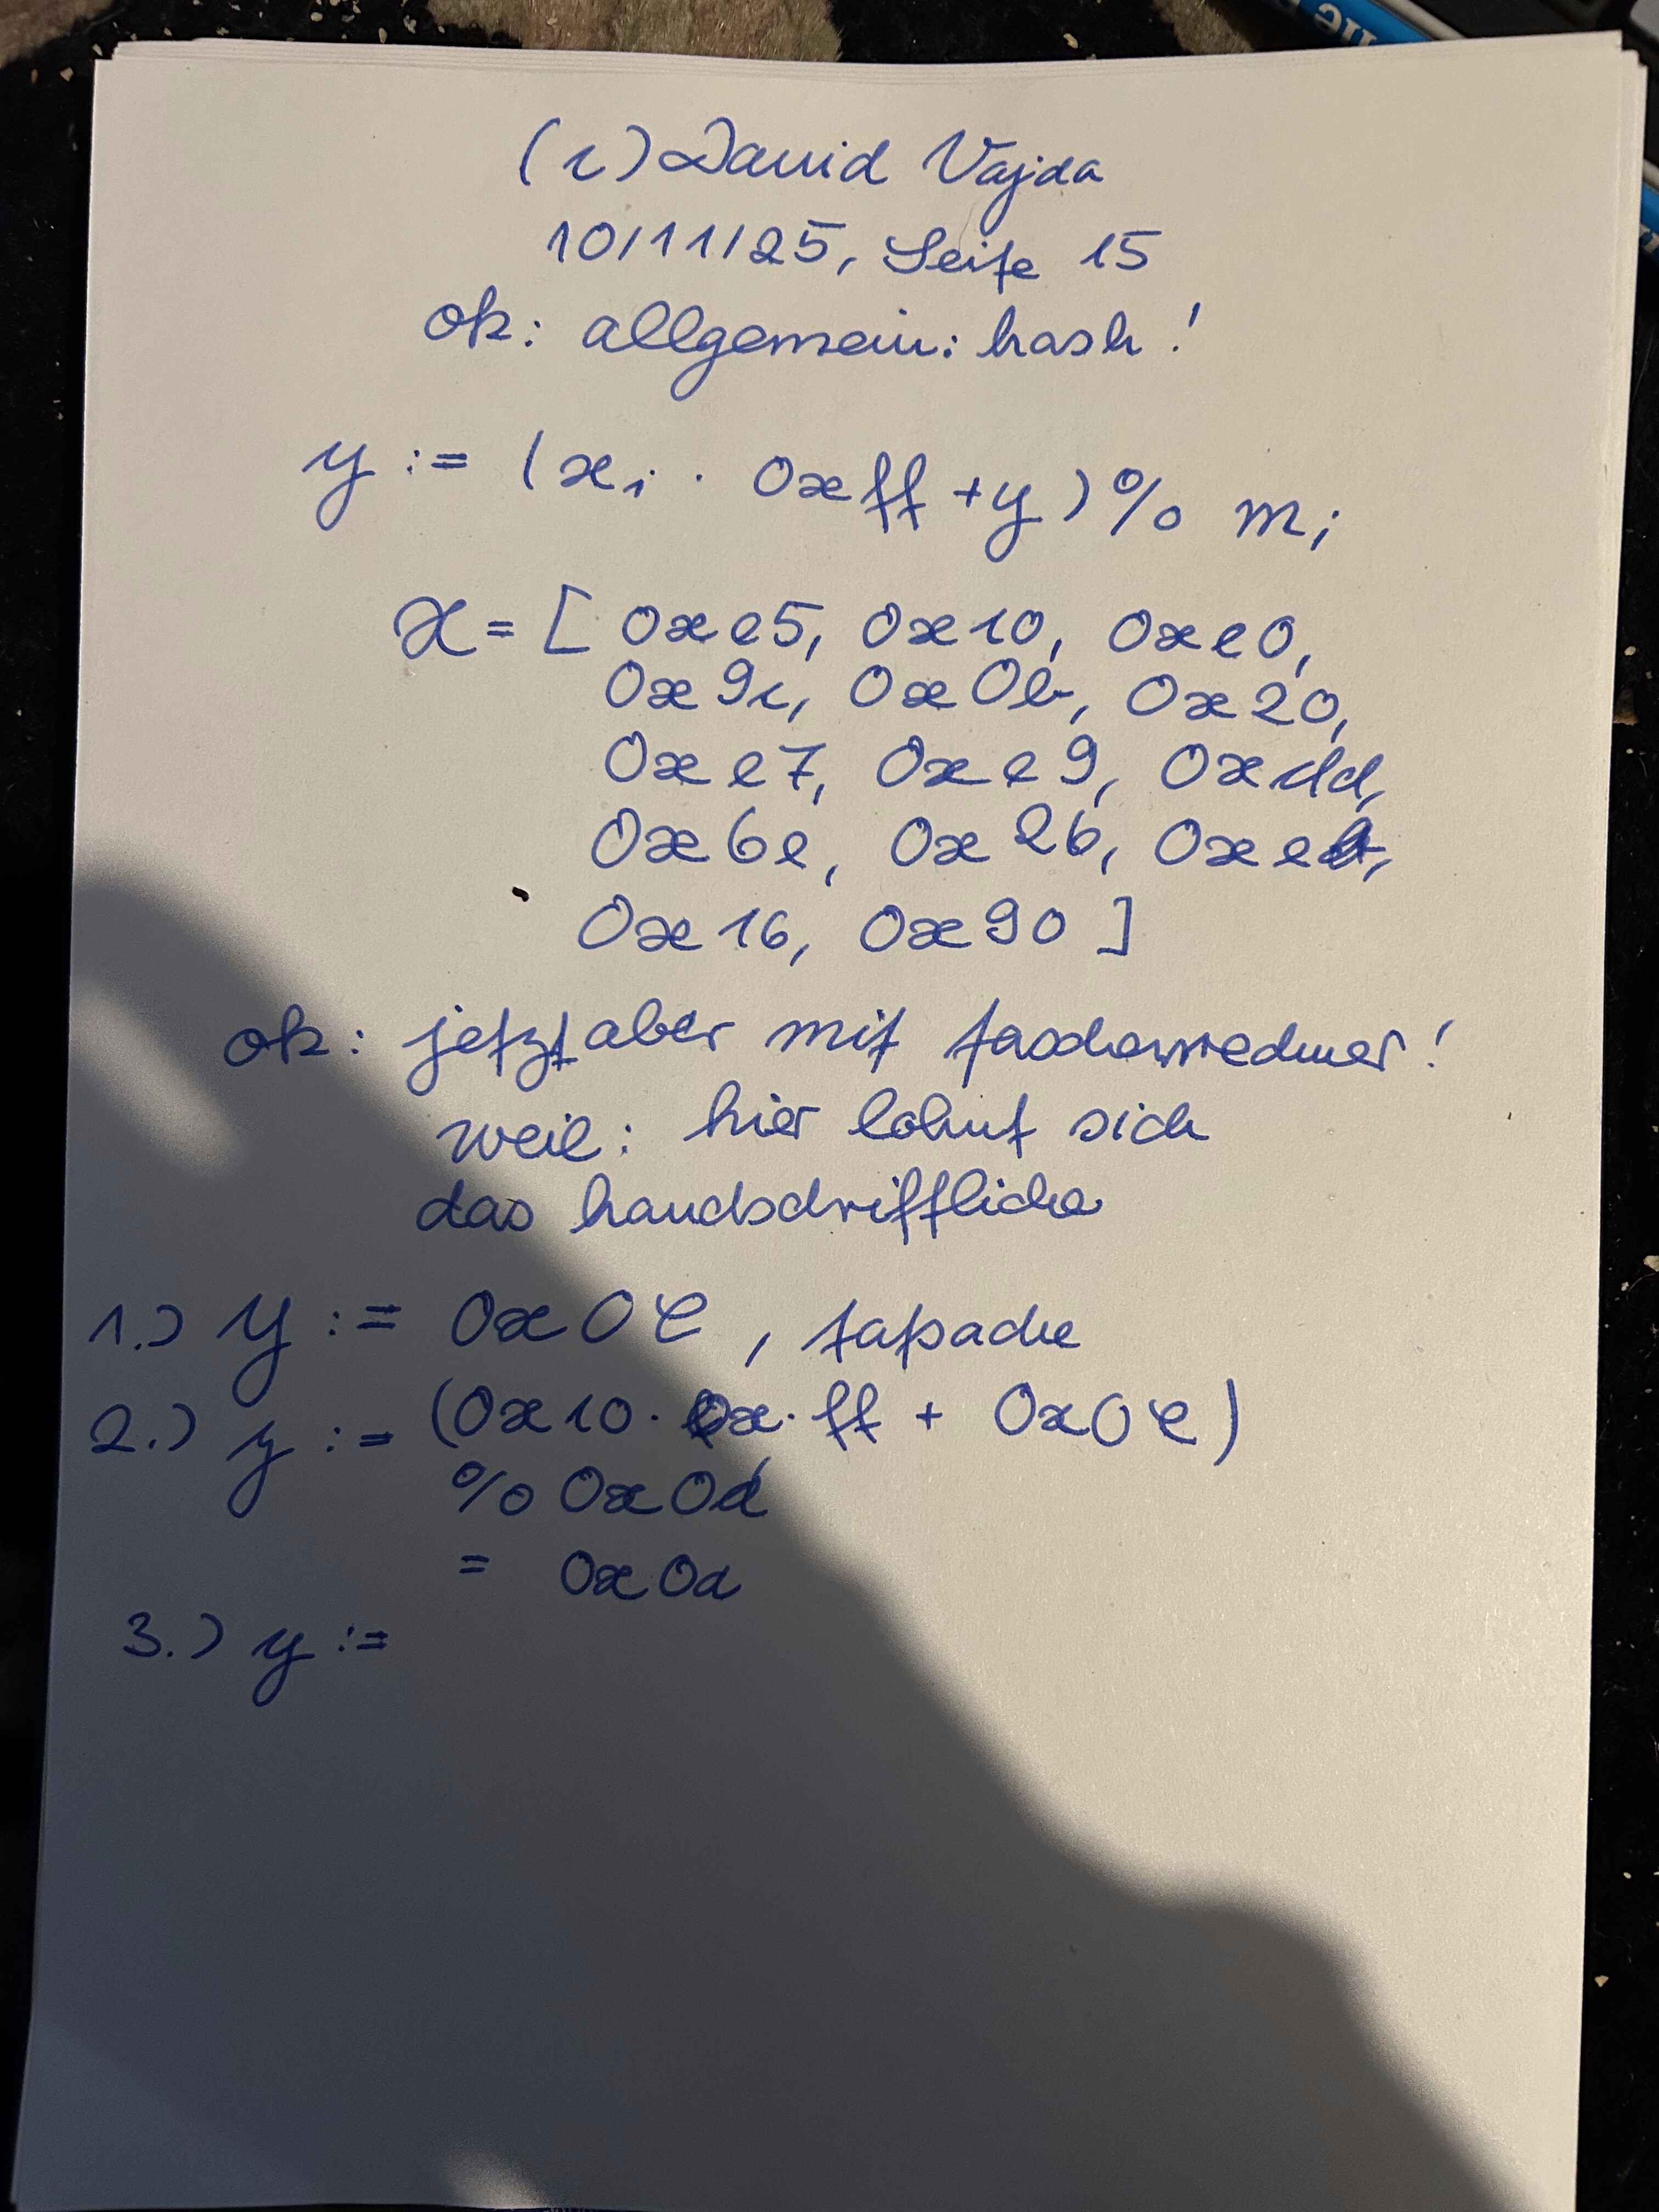 (c) David Vajda
10/11/25, Seite 15
ok: allgemein: hash!
y := (xi · 0xff + y) % m;
x = [ 0xe5, 0x10, 0xe0,
0x9c, 0x0b, 0x20,
0xe7, 0xe9, 0xdd,
0x6e, 0x26,
0x16, 0x90 ]
ok: jetzt aber mit taschenrechner!
weil: hier lohnt sich
das handschriftliche
1.) y := 0x0e, tatsache
2.) y := (0x10 · 0x · ff + 0x0e)
% 0x0d
= 0x0a
3.) y :=